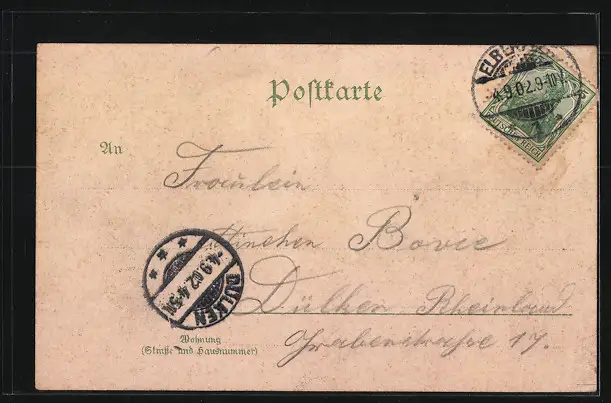 Postkarte
ELBERF
4.9.02.9-10
DEUTSCHES REICH
An
Fräulein
Minchen Bovie
Dülken Rheinland
Grabenstrasse 17.
-4.9.02.4-5N
DÜLKEN
Wohnung
(Straße und Hausnummer)